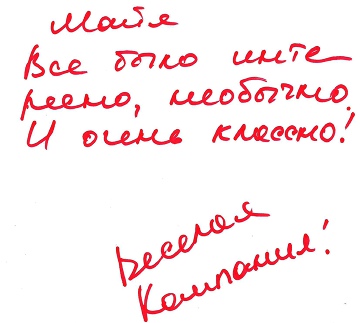 Майя
Все было инте
ресно, необычно.
И очень классно!
Веселая
Компания!